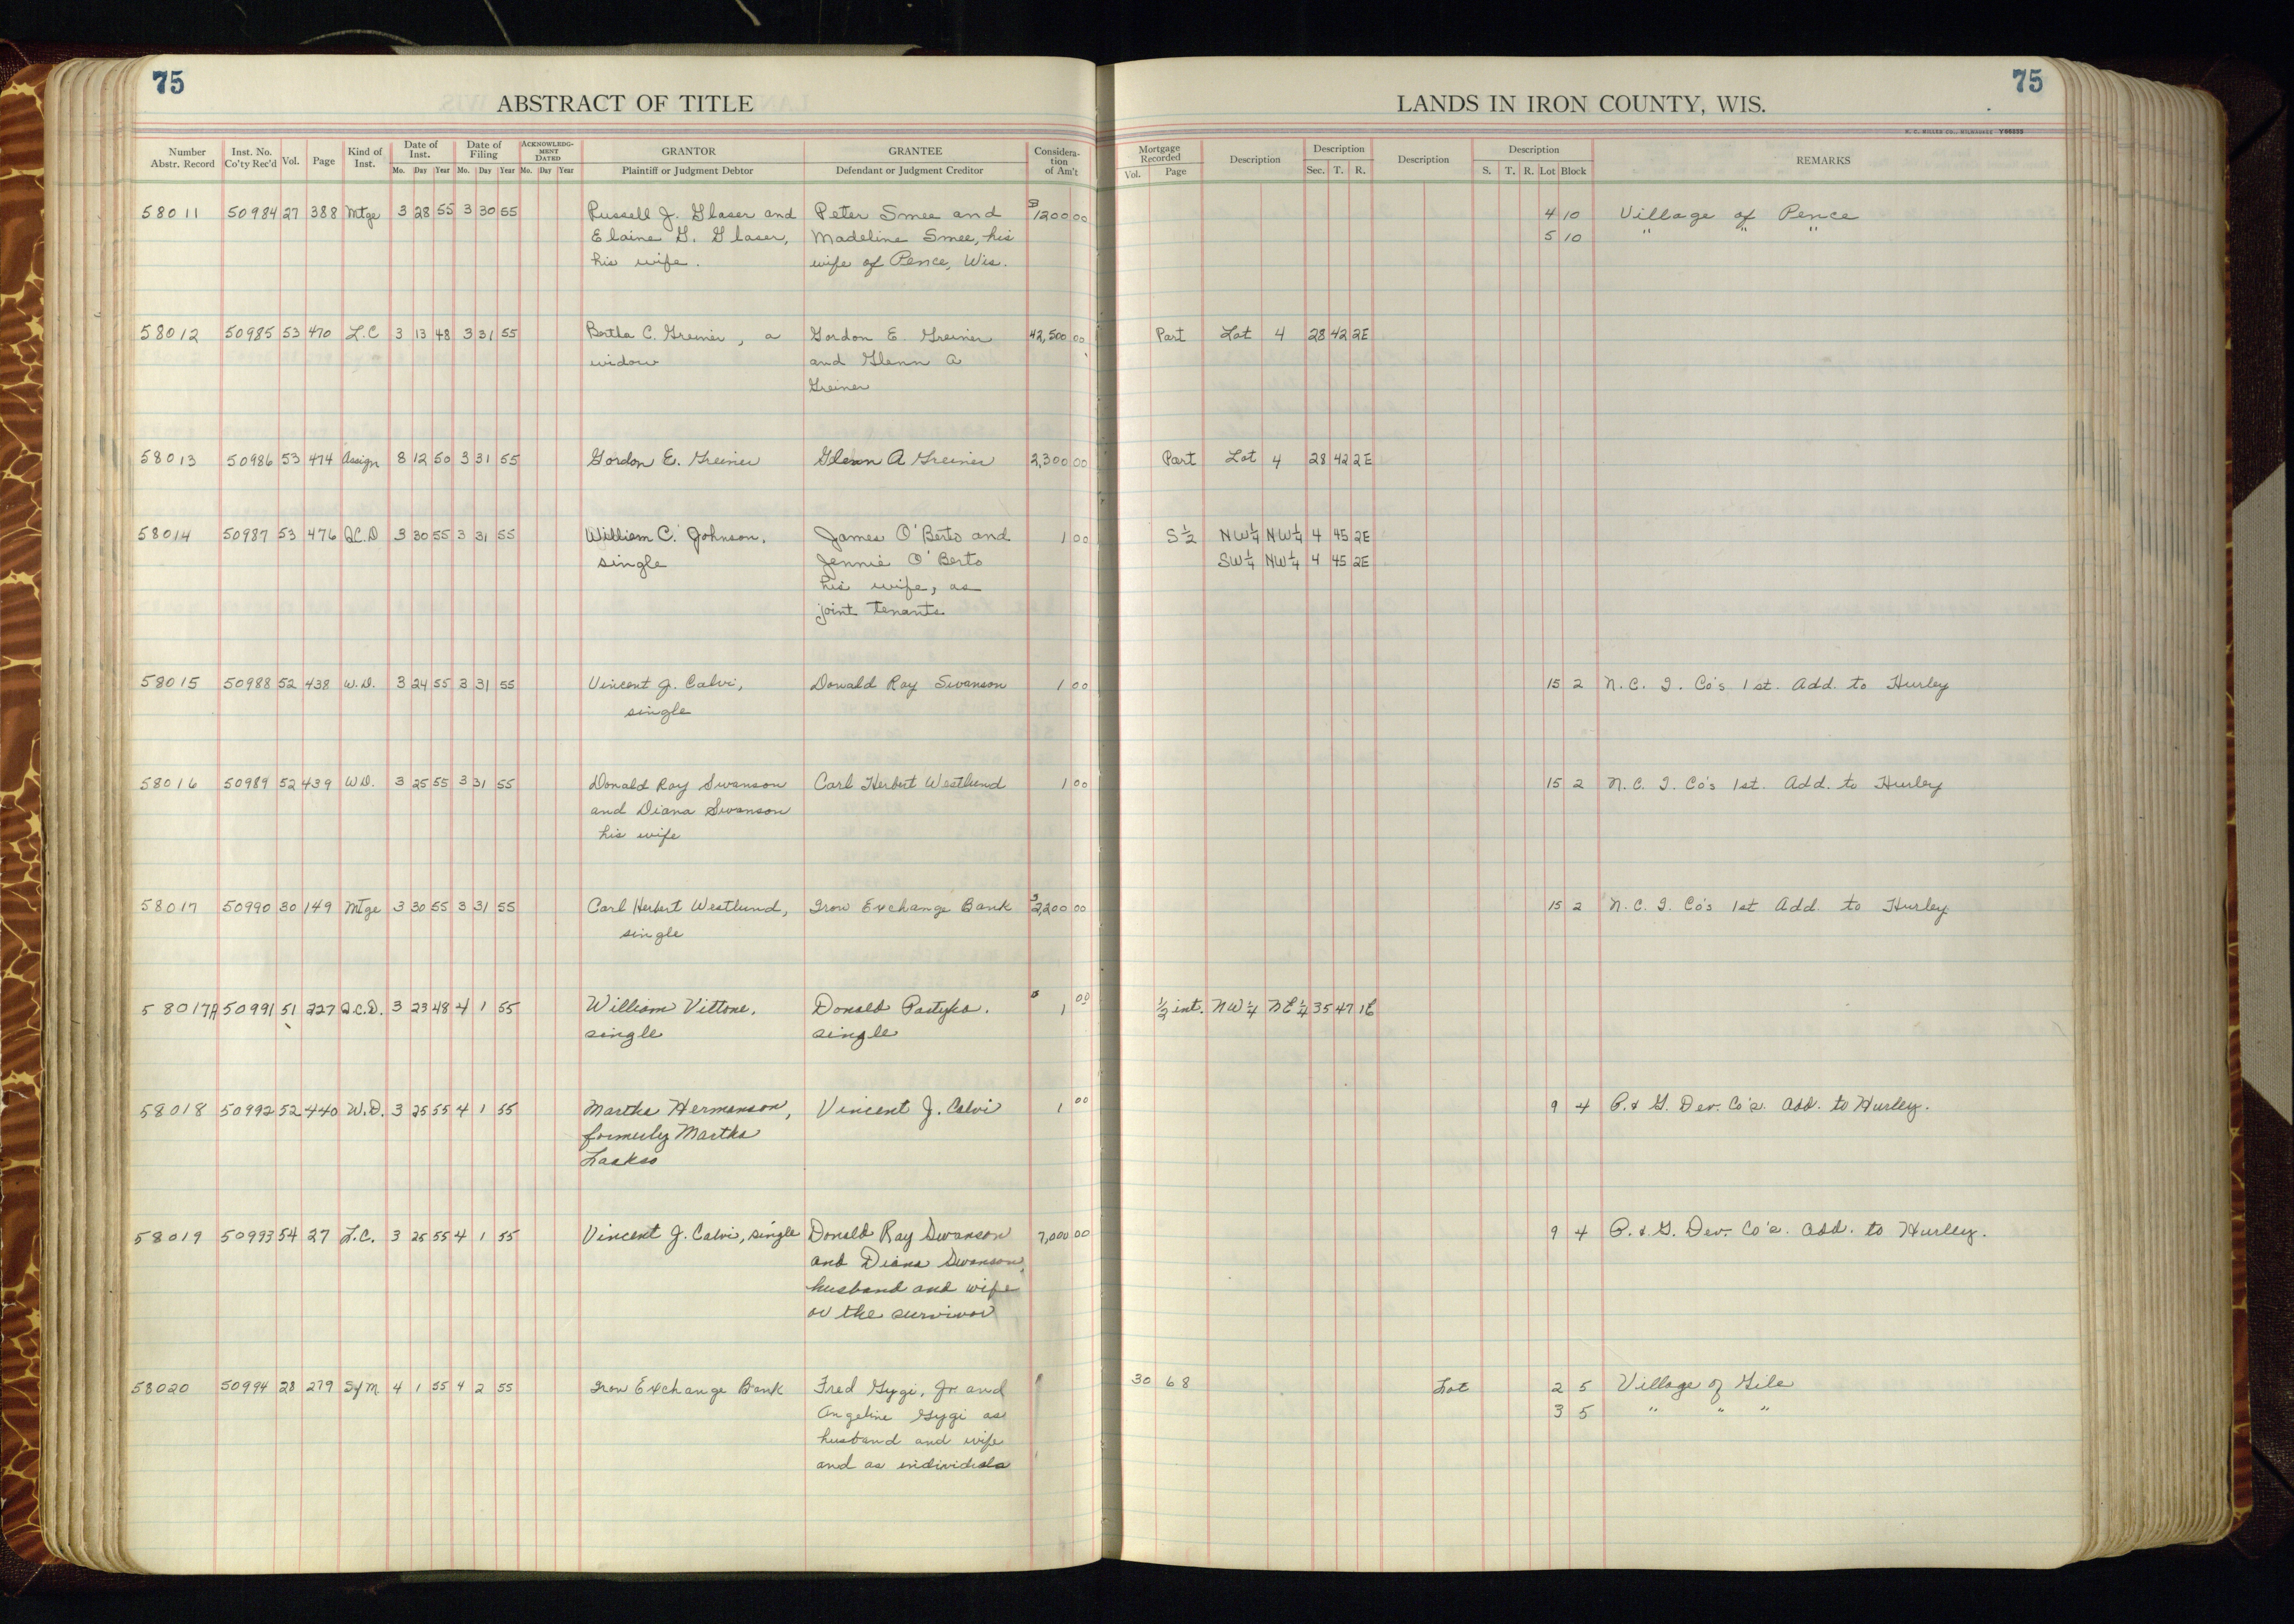 75
75
ABSTRACT OF TITLE
LANDS IN IRON COUNTY, WIS.
H. C. MILLER CO., MILWAUKEE Y66855
Number Abstr. Record Inst. No. Co'ty Rec'd Vol. Page Kind of Inst. Date of Inst. Mo. Day Year Date of Filing Mo. Day Year ACKNOWLEDGMENT DATED Mo. Day Year GRANTOR Plaintiff or Judgment Debtor GRANTEE Defendant or Judgment Creditor Consideration of Am't Mortgage Recorded Vol. Page Description Description Sec. T. R. Description Description S. T. R. Lot Block REMARKS
58011 50984 27 388 Mtge 3 28 55 3 30 55 Russell J. Glaser and Peter Smee and $1200 00 4 10 Village of Pence
Elaine G. Glaser, Madeline Smee, his 5 10 " " "
his wife. wife of Pence, Wis.
58012 50985 53 470 L.C 3 13 48 3 31 55 Bertha C. Greiner, a Gordon E. Greiner 42,500 00 Part Lot 4 28 42 2E
widow and Glenn A
Greiner
58013 50986 53 474 Assign 8 12 50 3 31 55 Gordon E. Greiner Glenn A Greiner 2,300 00 Part Lot 4 28 42 2E
58014 50987 53 476 Q.C.D 3 30 55 3 31 55 William C. Johnson, James O'Berto and 1 00 S 1/2 NW 1/4 NW 1/4 4 45 2E
single Jennie O'Berto SW 1/4 NW 1/4 4 45 2E
his wife, as
joint tenants
58015 50988 52 438 W.D. 3 24 55 3 31 55 Vincent J. Calvi, Donald Ray Swanson 1 00 15 2 N.C.I. Co's 1st. Add. to Hurley
single
58016 50989 52 439 W.D. 3 25 55 3 31 55 Donald Ray Swanson Carl Herbert Westlund 1 00 15 2 N.C.I. Co's 1st. Add. to Hurley
and Diana Swanson
his wife
58017 50990 30 149 Mtge 3 30 55 3 31 55 Carl Herbert Westlund, Iron Exchange Bank $2,200 00 15 2 N.C.I. Co's 1st Add. to Hurley
single
58017A 50991 51 227 Q.C.D. 3 23 48 4 1 55 William Vittone, Donald Pastyka. $1 00 1/2 int. NW 1/4 NE 1/4 35 47 1E
single single
58018 50992 52 440 W.D. 3 25 55 4 1 55 Martha Hermanson, Vincent J. Calvi 1 00 9 4 P. & G. Dev. Co's. Add. to Hurley.
formerly Martha
Laakso
58019 50993 54 27 L.C. 3 25 55 4 1 55 Vincent J. Calvi, single Donald Ray Swanson 7,000 00 9 4 P. & G. Dev. Co's. Add. to Hurley.
and Diana Swanson,
husband and wife
or the survivor
58020 50994 28 279 S/M 4 1 55 4 2 55 Iron Exchange Bank Fred Gygi, Jr and 30 68 Lot 2 5 Village of Gile
Angeline Gygi as 3 5 " " "
husband and wife
and as individuals